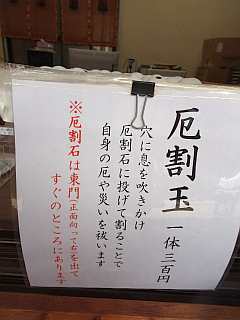 厄割玉 一体 三百円
穴に息を吹きかけ
厄割石に投げて割ることで
自身の厄や災いを祓います
※厄割石は東門(正面向って右)を出て
すぐのところにあります